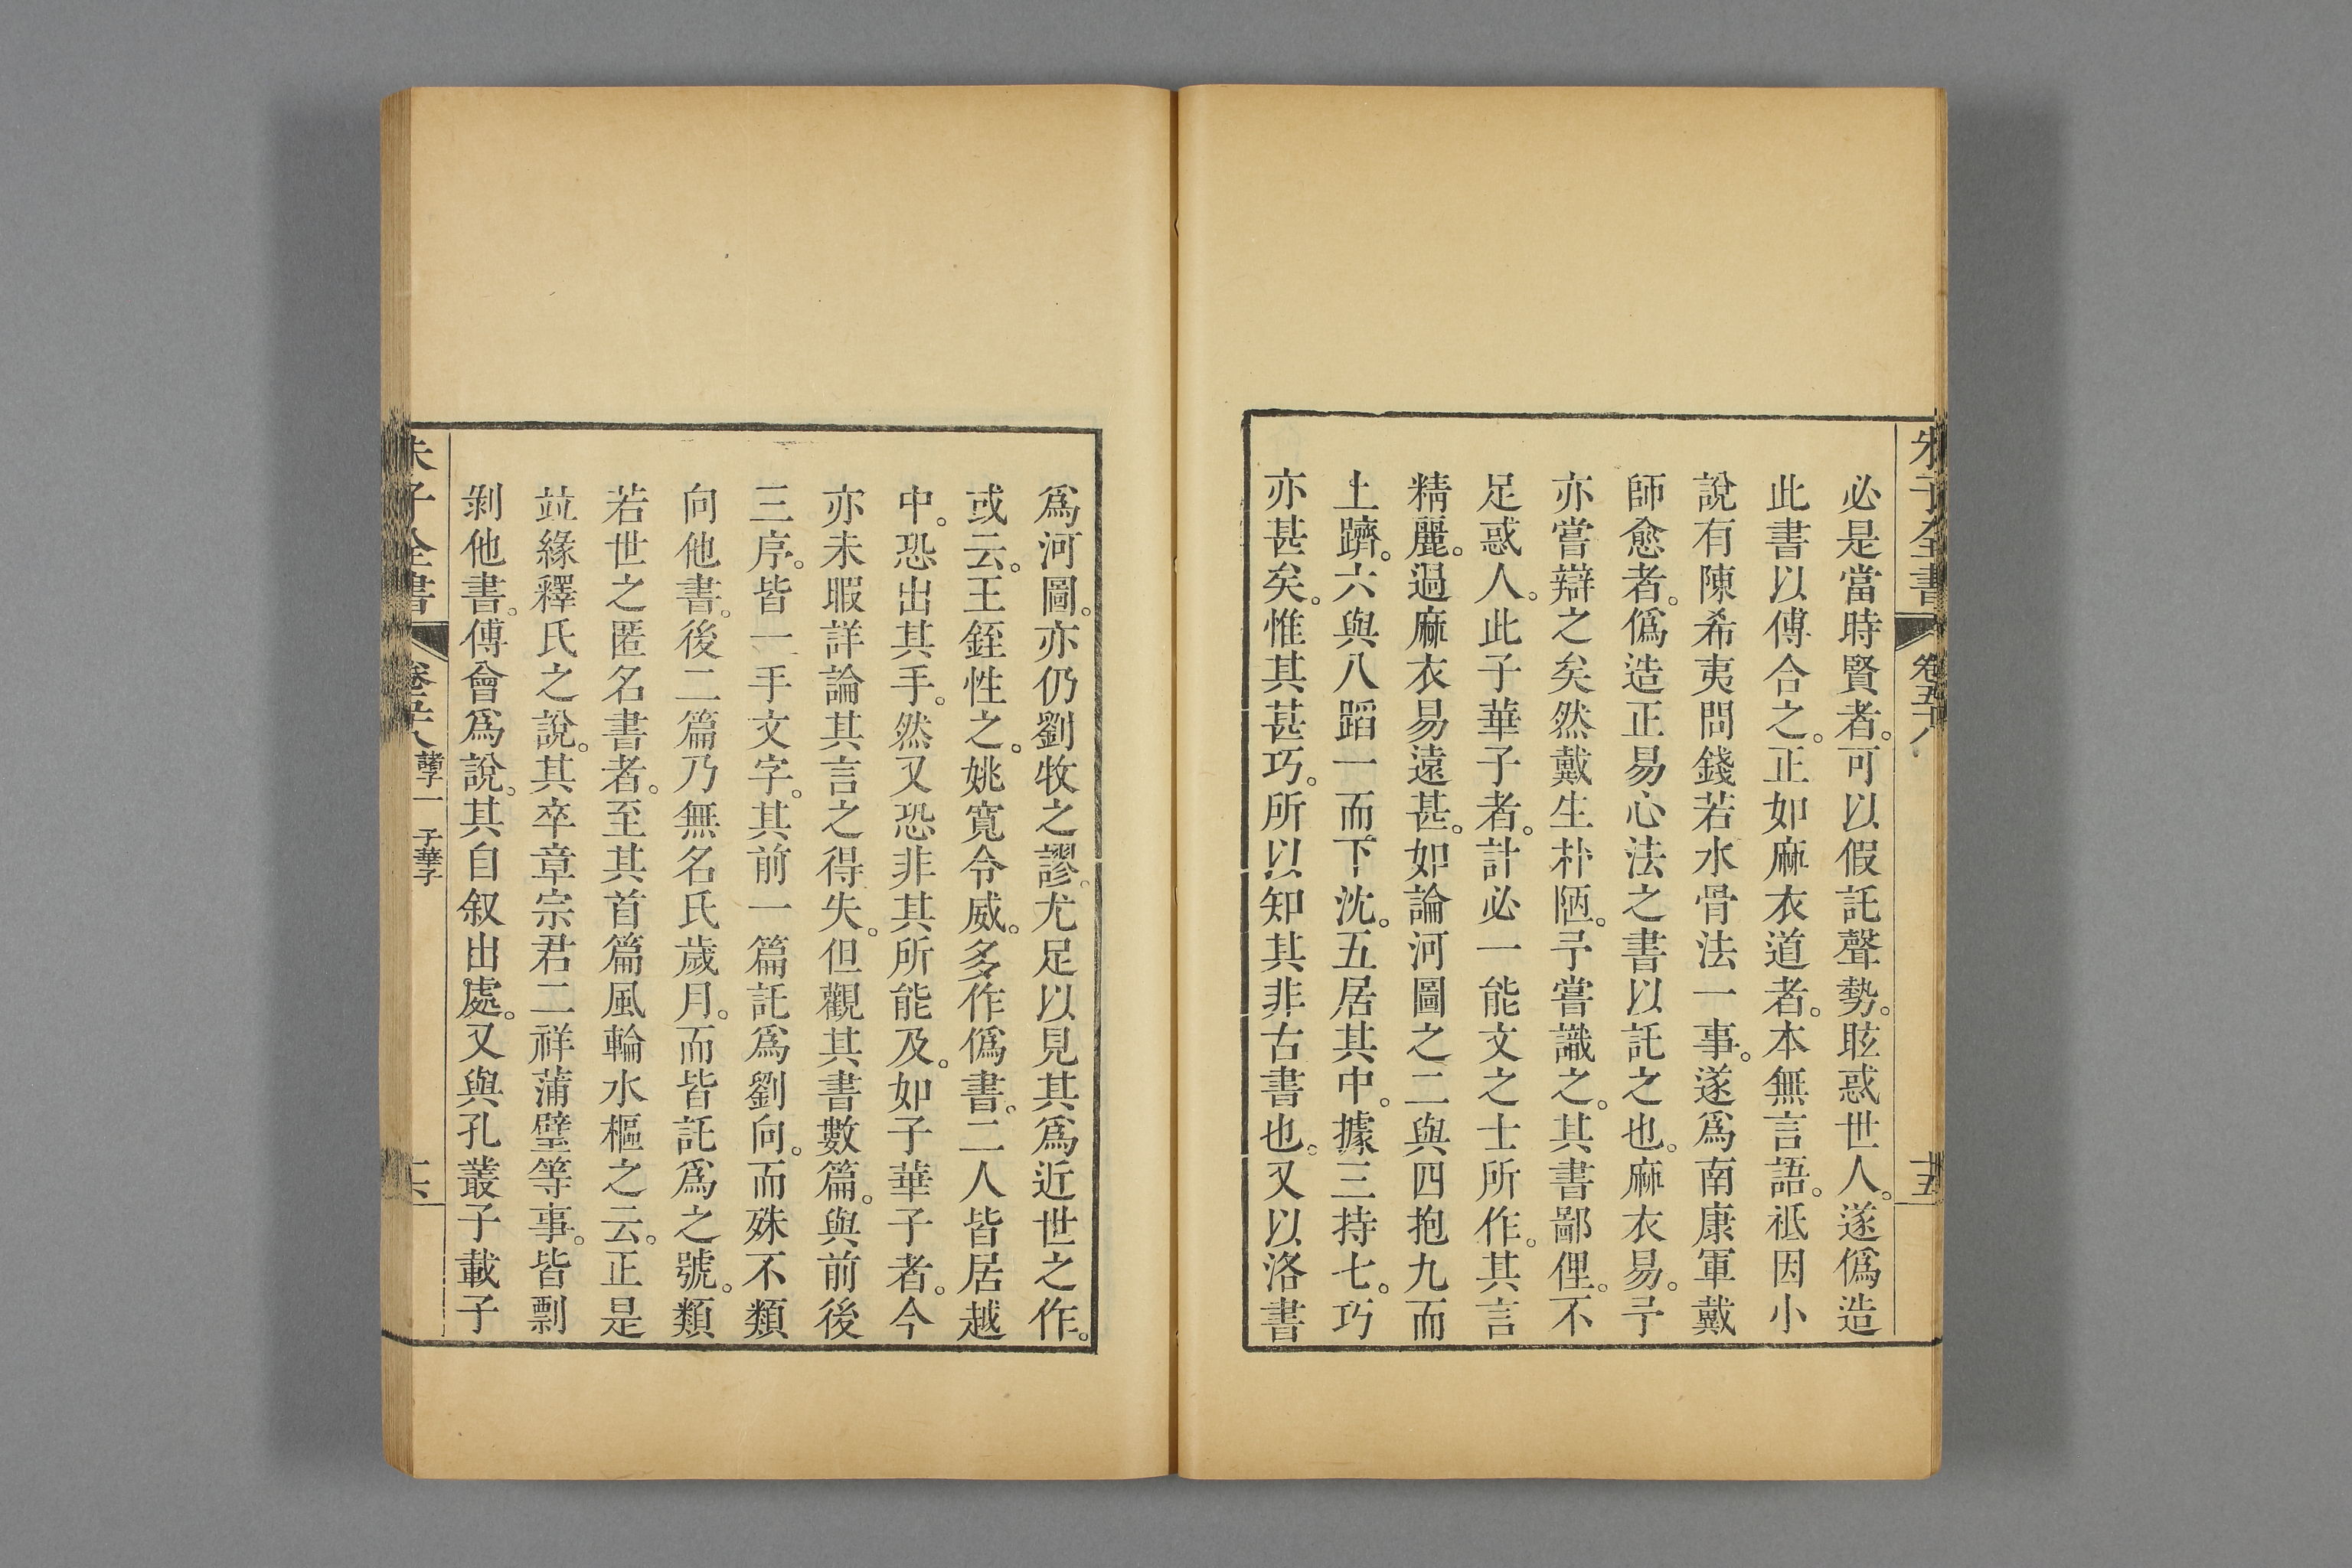 朱子全書 卷五十八 十五
必是當時賢者。可以假託聲勢。眩惑世人。遂僞造
此書以傅合之。正如麻衣道者。本無言語。祗因小
說有陳希夷問錢若水骨法一事。遂爲南康軍戴
師愈者。僞造正易心法之書以託之也。麻衣易。予
亦嘗辯之矣然戴生朴陋。予嘗識之。其書鄙俚。不
足惑人。此子華子者。計必一能文之士所作。其言
精麗。過麻衣易遠甚。如論河圖之二與四抱九而
上躋。六與八蹈一而下沈。五居其中。據三持七。巧
亦甚矣。惟其甚巧。所以知其非古書也。又以洛書
爲河圖。亦仍劉牧之謬。尤足以見其爲近世之作。
或云。王銍性之。姚寬令威。多作僞書。二人皆居越
中。恐出其手。然又恐非其所能及。如子華子者。今
亦未暇詳論其言之得失。但觀其書數篇。與前後
三序。皆一手文字。其前一篇託爲劉向。而殊不類
向他書。後二篇乃無名氏歲月。而皆託爲之號。類
若世之匿名書者。至其首篇風輪水樞之云。正是
竝緣釋氏之說。其卒章宗君二祥蒲璧等事。皆剽
剝他書。傅會爲說。其自叙出處。又與孔叢子載子
朱子全書 卷五十八 諸子一 子華子 十六